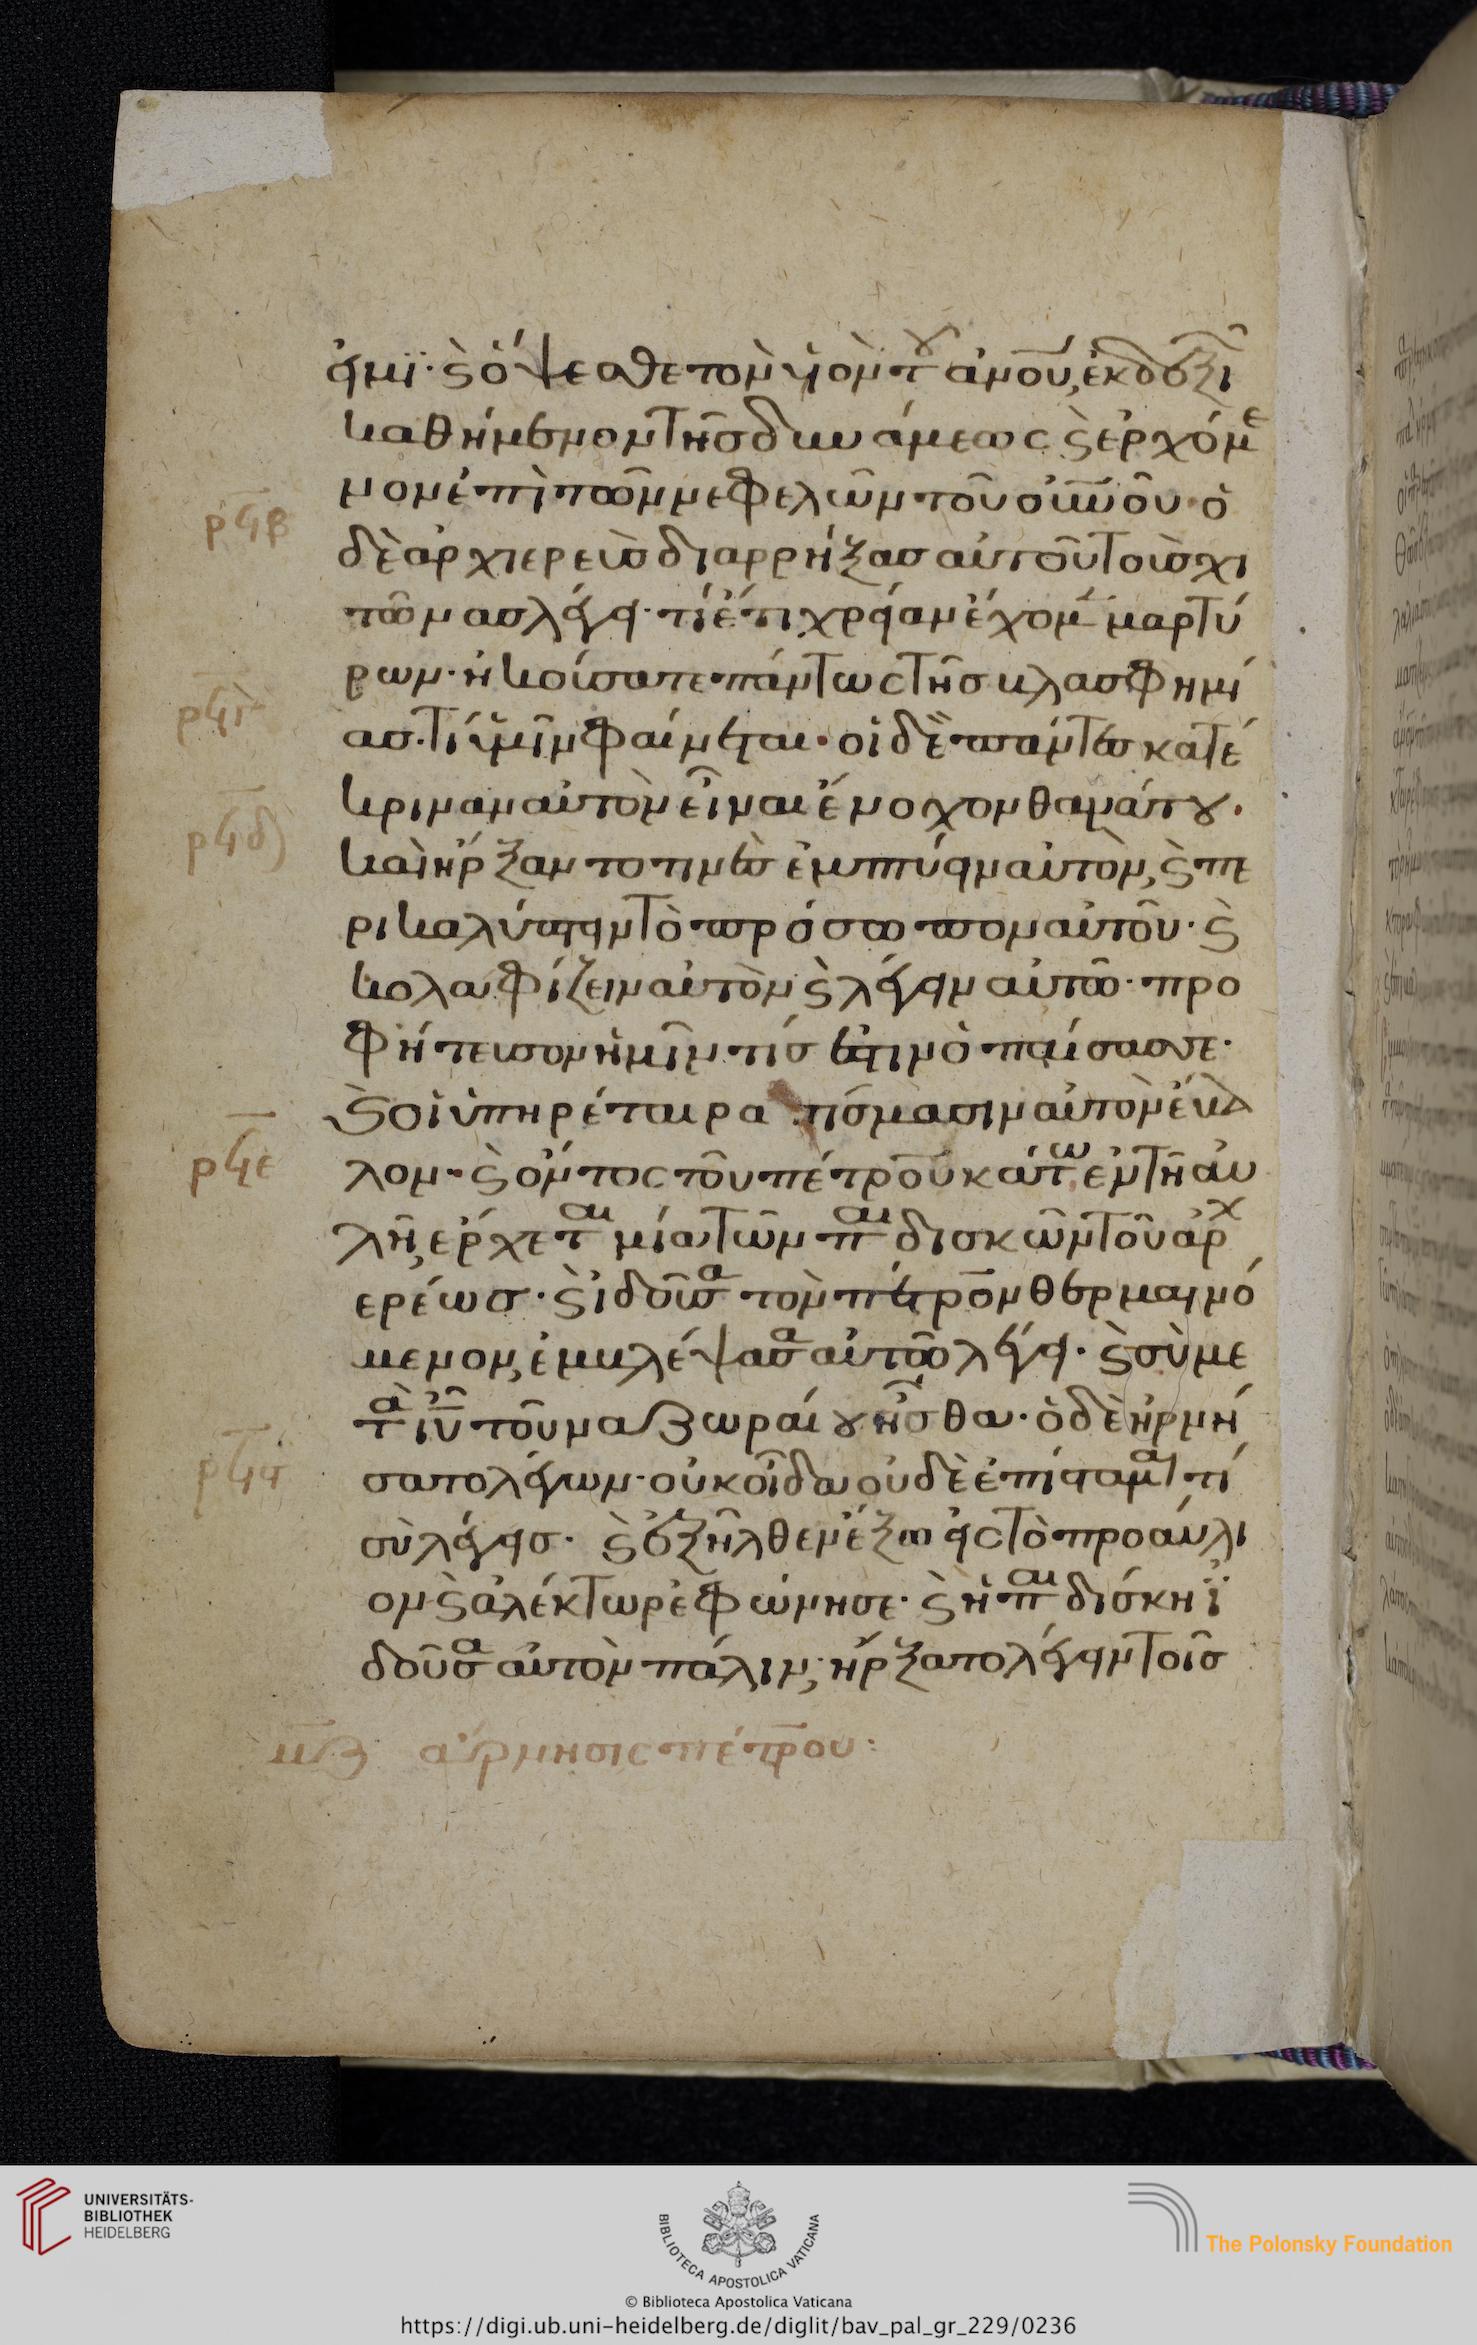 εἰμϊ· ϛ ὄψεσθε τὸν υἱὸν τοῦ ἀνου, ἐκ δεξι
καθήμενον τῆς δυνάμεως ϛ ἐρχόμε
νον ἐπὶ τῶν νεφελῶν τοῦ οὐνοῦ· ὁ
ρϟβ
δὲ ἀρχιερεὺς διαρρήξας αὐτοῦ τοὺς χι
τῶνας λέγει· τί ἔτι χρείαν ἔχομεν μαρτύ
ρων· ἠκούσατε πάντως τῆς βλασφημί
ρϟγ
ας. τί ὑμῖν φαίνεται· οἱ δὲ πάντες κατέ
κριναν αὐτὸν εἶναι ἔνοχον θανάτου.
ρϟδ
καὶ ἤρξαντο τινὲς ἐμπτύειν αὐτὸν, ϛ πε
ρικαλύπτειν τὸ πρόσωπον αὐτοῦ· ϛ
κολαφίζειν αὐτὸν ϛ λέγειν αὐτῶ· προ
φήτευσον ἡμῖν τίς ἐστιν ὁ παίσας σε·
ϛ οἱ ὑπηρέται ραπίσμασιν αὐτὸν ἔβαλ
ρϟε
λον· ϛ ὄντος τοῦ πέτρου κάτω, ἐν τῆ αὐ
λῆ, ἔρχεται μία τῶν παιδισκῶν τοῦ ἀρχ
ερέως· ϛ ἰδοῦσα τὸν πέτρον θερμαινό
μενον, ἐμβλέψασα αὐτῶ λέγει· ϛ σὺ με
τὰ ιυ τοῦ ναζωραίου ἦσθα· ὁ δὲ ἠρνή
ρϟϛ
σατο λέγων· οὐκ οἶδα οὐδὲ ἐπίσταμαι τί
σὺ λέγεις· ϛ ἐξῆλθεν ἔξω εἰς τὸ προαύλι
ον ϛ ἀλέκτωρ ἐφώνησε· ϛ ἡ παιδίσκη ἰ
δοῦσα αὐτὸν πάλιν, ἤρξατο λέγειν τοῖς
μζ ἄρνησις πέτρου:
UNIVERSITÄTS-
BIBLIOTHEK
HEIDELBERG
BIBLIOTECA APOSTOLICA VATICANA
The Polonsky Foundation
© Biblioteca Apostolica Vaticana
https://digi.ub.uni-heidelberg.de/diglit/bav_pal_gr_229/0236